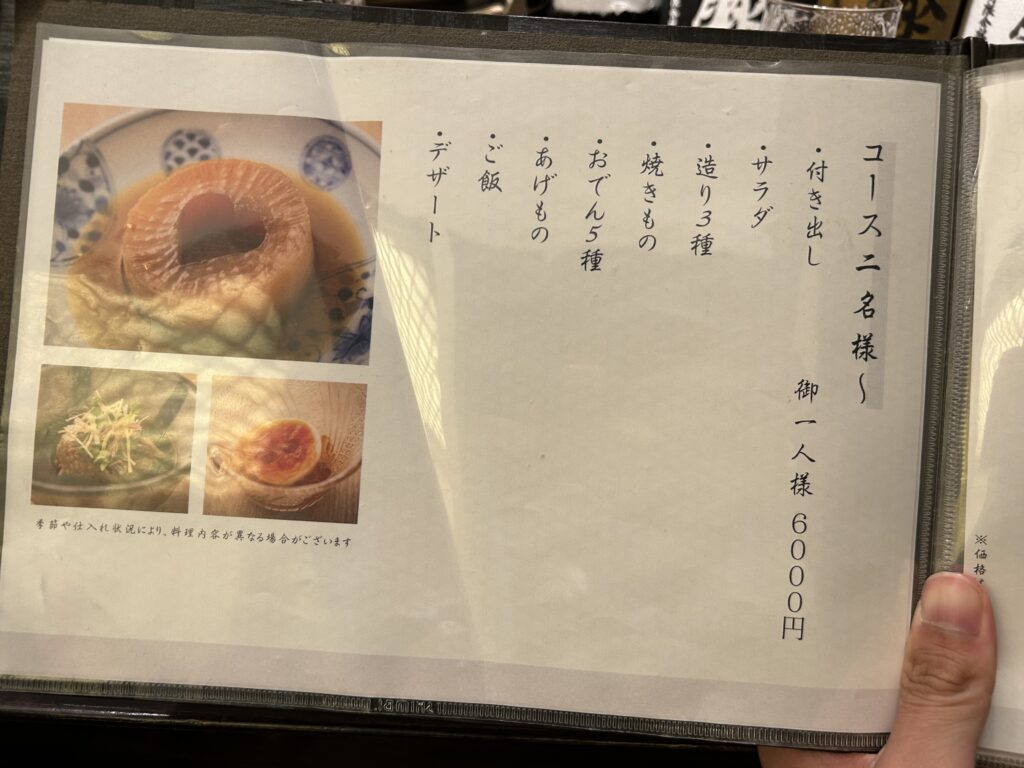 コース二名様〜
御一人様 6000円
・付き出し
・サラダ
・造り3種
・焼きもの
・おでん5種
・あげもの
・ご飯
・デザート
季節や仕入れ状況により、料理内容が異なる場合がございます
※価格